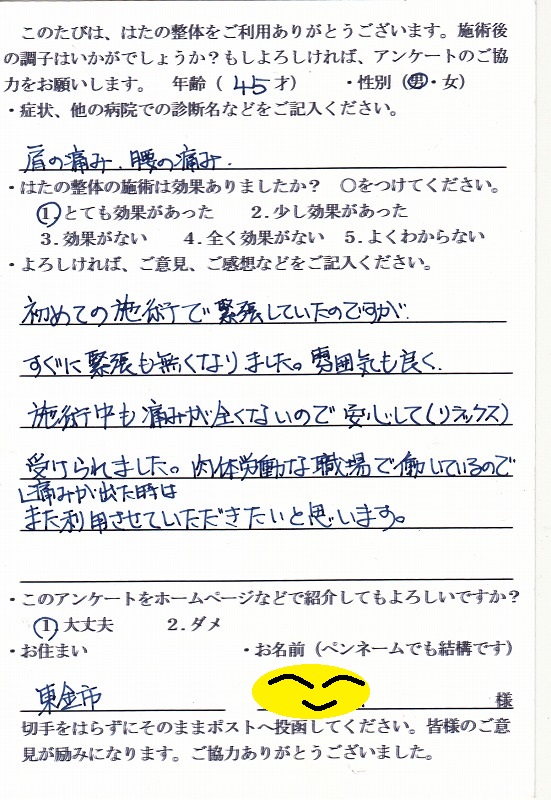 このたびは、はたの整体をご利用ありがとうございます。施術後
の調子はいかがでしょうか?もしよろしければ、アンケートのご協
力をお願いします。 年齢( 45 才) ・性別(男・女)
・症状、他の病院での診断名などをご記入ください。
肩の痛み、腰の痛み.
・はたの整体の施術は効果ありましたか? ○をつけてください。
1.とても効果があった 2.少し効果があった
3.効果がない 4.全く効果がない 5.よくわからない
・よろしければ、ご意見、ご感想などをご記入ください。
初めての施術で緊張していたのですが.
すぐに緊張も無くなりました。雰囲気も良く.
施術中も痛みが全くないので安心して(リラックス)
受けられました。肉体労働な職場で働いているので
痛みが出た時は
また利用させていただきたいと思います。
・このアンケートをホームページなどで紹介してもよろしいですか?
1.大丈夫 2.ダメ
・お住まい ・お名前(ペンネームでも結構です)
東金市 様
切手をはらずにそのままポストへ投函してください。皆様のご意
見が励みになります。ご協力ありがとうございました。